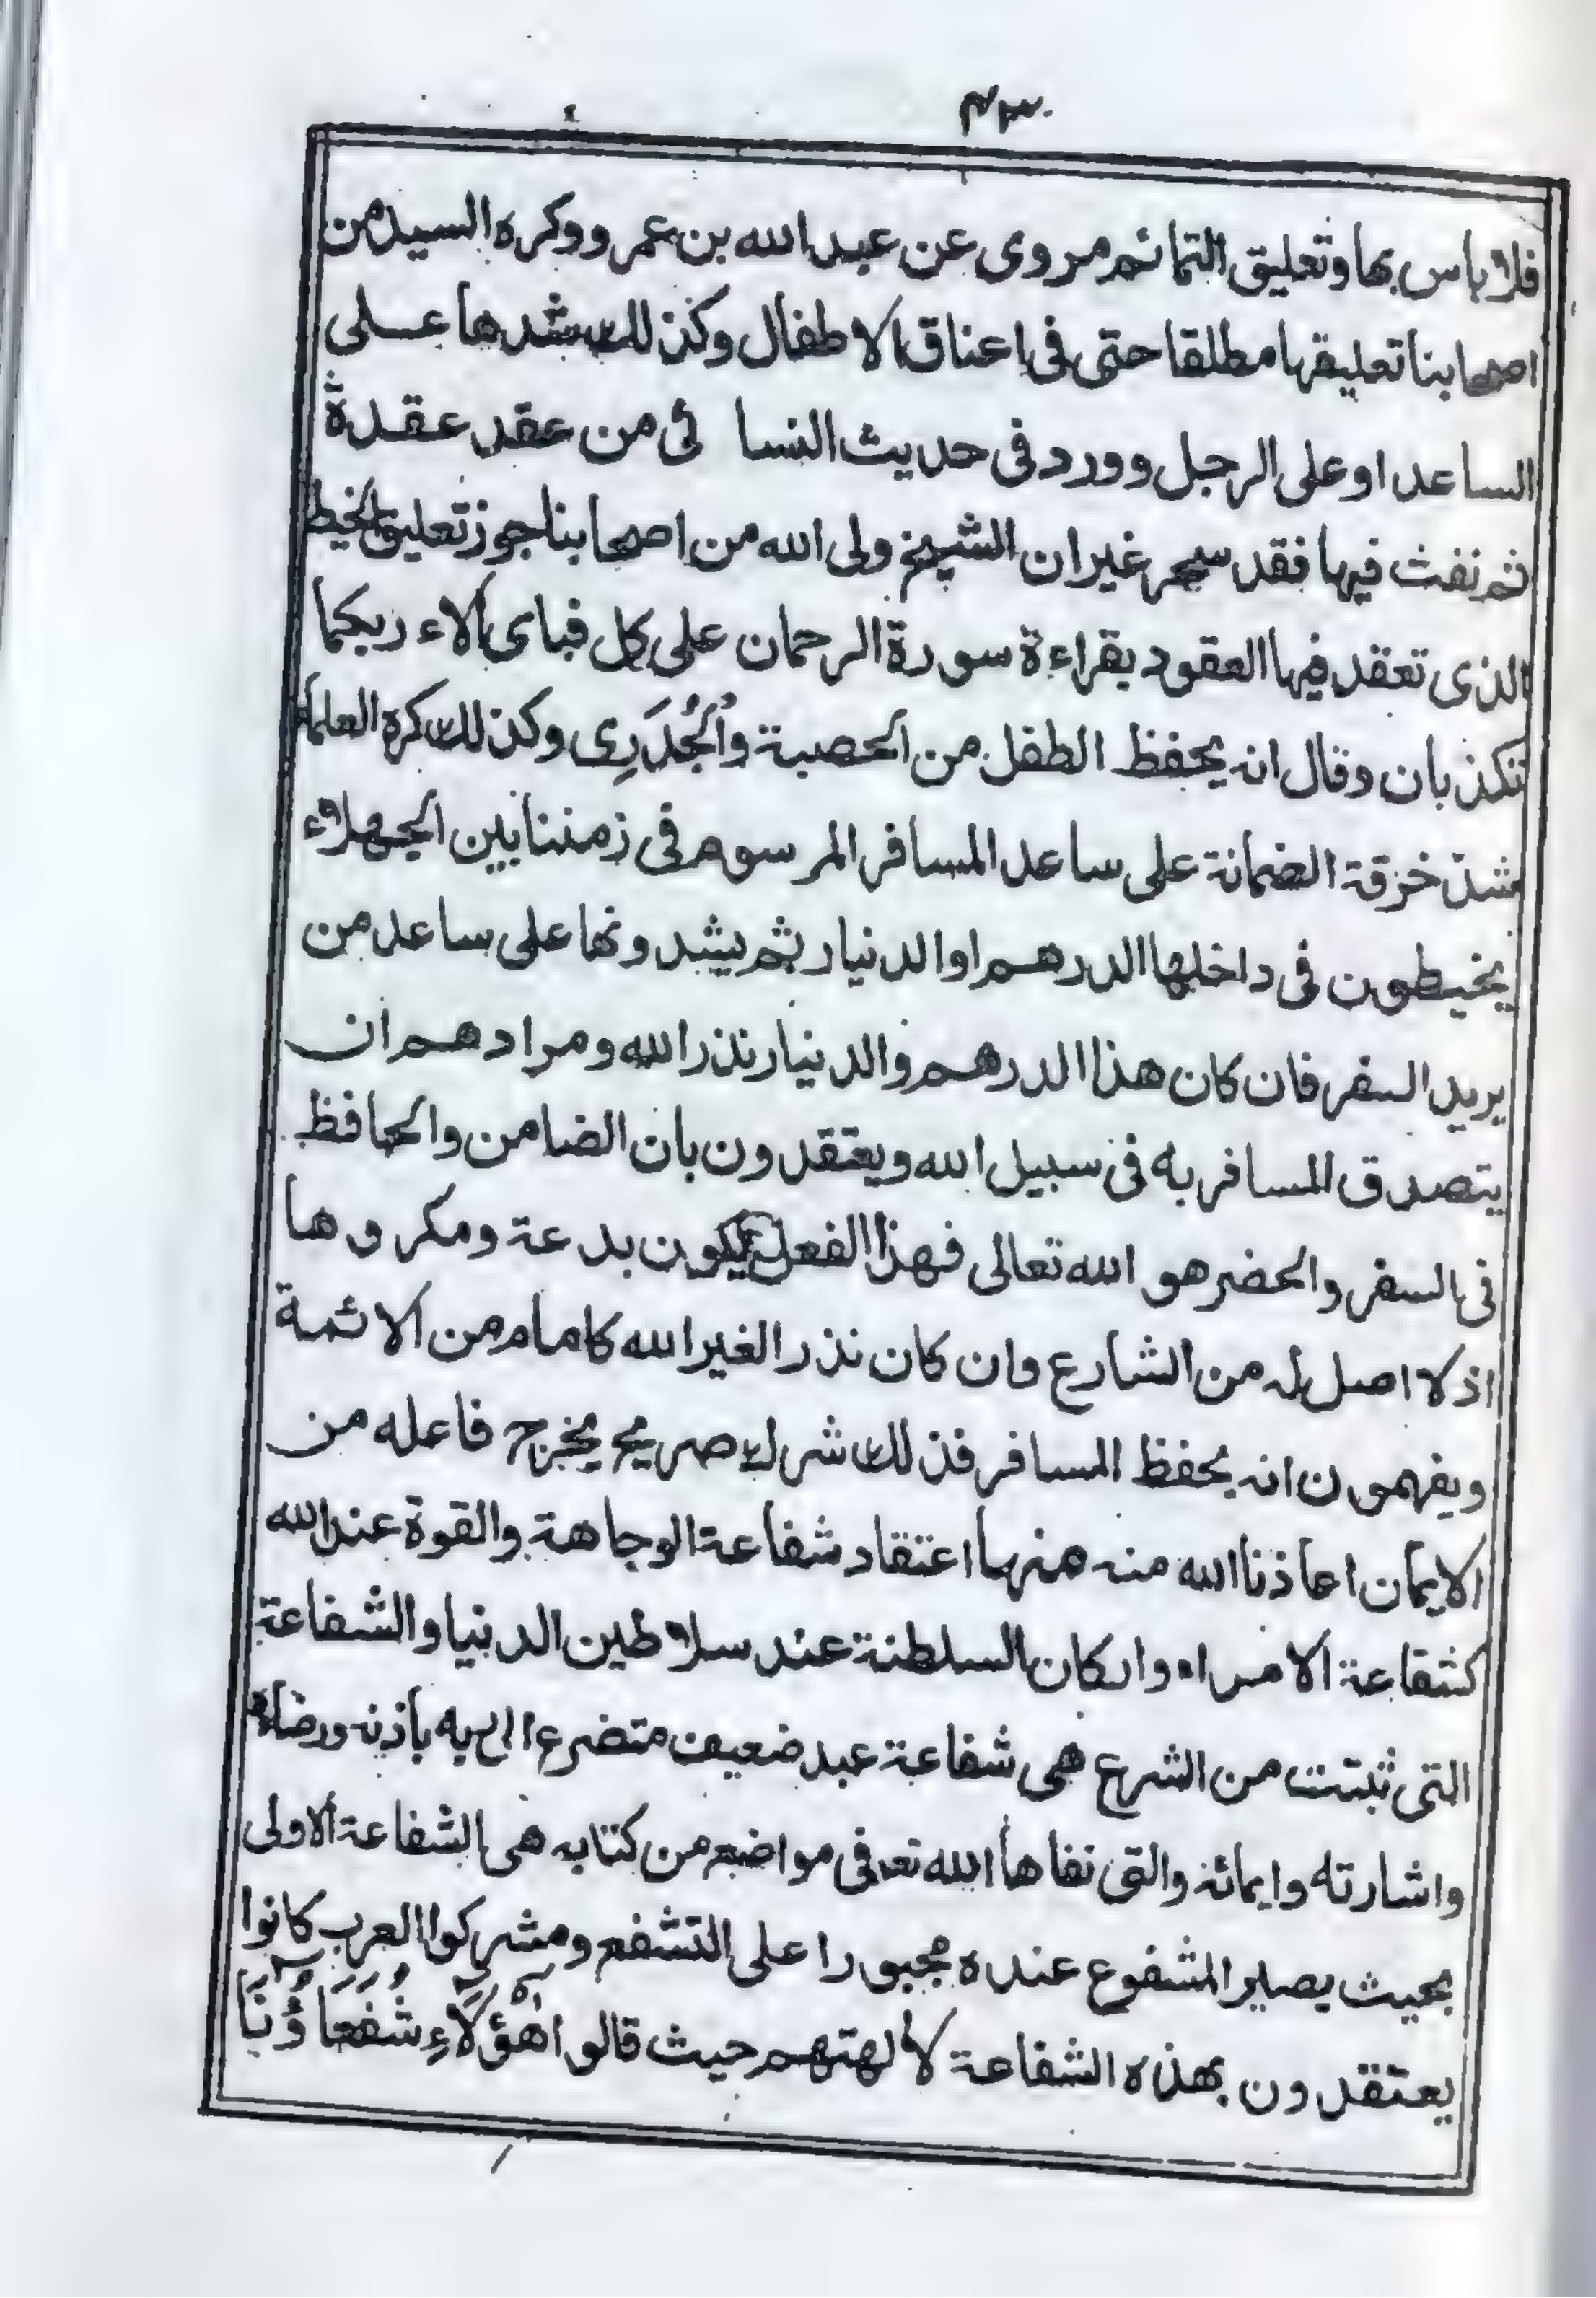 ٤٣٠
فلا باس بها وتعليق التمائم مروى عن عبد الله بن عمرو وكره السيد من
اصحابنا تعليقها مطلقا حتى فى اعناق الاطفال وكذلك شدها على
الساعد او على الرجل وورد فى حديث النسا ئى من عقد عقدة
ثم نفث فيها فقد سحر غير ان الشيخ ولى الله من اصحابنا جوز تعليق الخيط
الذى تعقد فيها العقود بقراءة سورة الرحمان على كل فباى الاء ربكما
تكذبان وقال انه يحفظ الطفل من الحصبة وَالْجُدَرِى وكذلك كره العلماء
شدّ خرقة الضمانة على ساعد المسافر المرسوم فى زمننا بين الجهلاء
يخيطون فى داخلها الدرهم او الدنيار ثم يشدونها على ساعد من
يريد السفر فان كان هذا الدرهم والدنيار نذر الله ومرادهم ان
يتصدق المسافر به فى سبيل الله ويعتقدون بان الضامن والحافظ
فى السفر والحضر هو الله تعالى فهذا الفعل يكون بدعة ومكروها
اذ لا اصل له من الشارع وان كان نذر الغير الله كامام من الائمة
ويفهمون انه يحفظ المسافر فذلك شرك صريح يخرج فاعله من
الايمان اعاذنا الله منه منها اعتقاد شفاعة الوجاهة والقوة عند الله
كشفاعة الامراء واركان السلطنة عند سلاطين الدنيا والشفاعة
التى ثبتت من الشرع هى شفاعة عبد ضعيف متضرع اليه باذنه ورضاه
واشارته وايمائه والتى نفاها الله تعـ فى مواضع من كتابه هى الشفاعة الاولى
بحيث يصير المشفوع عنده مجبورا على التشفع ومشركوا العرب كانوا
يعتقدون بهذه الشفاعة لالهتهم حيث قالوا هٰٓؤُلَآءِ شُفَعَآؤُنَا